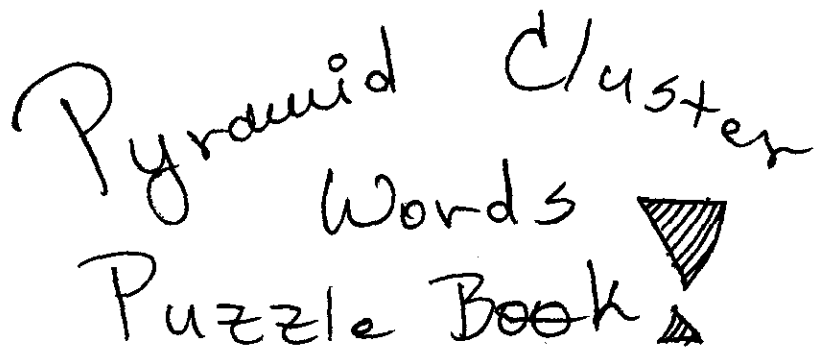 Pyramid Cluster
Words
Puzzle Book!